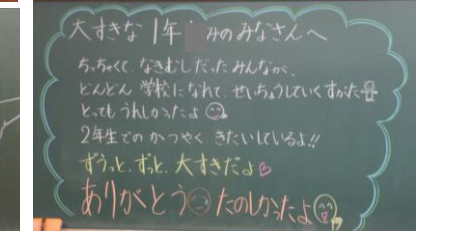 大すきな 1年 みのみなさんへ
ちっちゃくて、なきむしだったみんなが、
どんどん 学校になれて、せいちょうしていくすがた
とってもうれしかったよ
2年生での かつやく きたいしているよ!!
ずうっと、ずっと、大すきだよ
ありがとう たのしかったよ